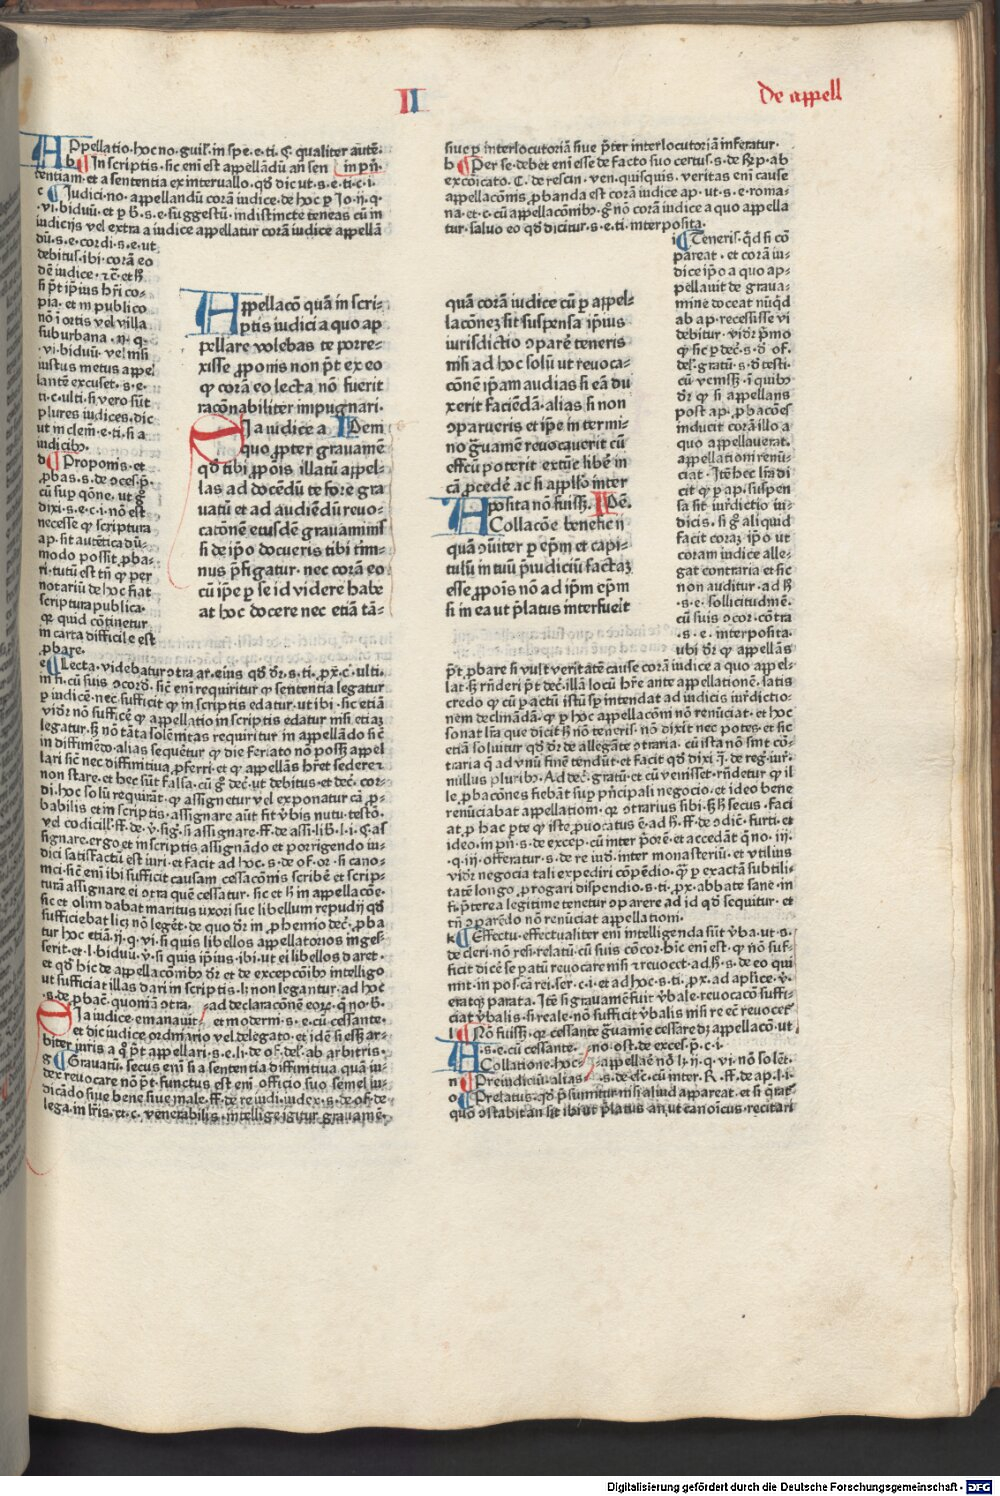 II
De appell
APpellatio. hoc no. guil. in spe. e. ti. C. qualiter autē.
b In scriptis. sic eni est appellādū an sen in pn̄.
tentiam. et a sententia ex interuallo. qd dic ut. s. e. ti. c. i.
c Iudici. no. appellandū corā iudice. de hoc p Io. ij. q.
.vi. biduū. et p h. s. e. suggestū. indistincte teneas cū in
iudicijs vel extra a iudice appellatur corā iudice appellā
dū. s. e. cordi. s. e. ut
debitus. ibi. corā eo
dē iudice. ⁊c. et h̄
si pt ipius hri co-
pia. et in publico
nō ī ortis vel villa
suburbana. ij. q.
.vi. biduū. vel nisi
iustus metus appel
lantē excuset. s. e.
ti. c. ulti. si vero sūt
plures iudices. dic
ut in clem. e. ti. si a
iudicib.
d Proponis. et
pbas. s. de pces. p.
cū sup qōne. ut g
dixi. s. e. c. i. nō est
necesse q scriptura
ap. sit autētica dū-
modo possit pba-
ri. tutū est tn̄ q per
notariū de hoc fiat
scriptura publica.
qr quid cōtinetur
in carta difficile est
pbare.
Appellacō quā in scri-
ptis iudici a quo ap
pellare volebas te porre-
xisse pponis non pt ex eo
q corā eo lecta nō fuerit
racōnabiliter impugnari.
SI a iudice a Idem
quo propter grauamē
qd tibi ppōis illatū appel-
las ad docēdū te fore gra
uatū et ad audiēdū reuo-
catōnē eiusdē grauaminis
si de ipo docueris tibi tmi-
nus pfigatur. nec corā eo
cū ipe p se id videre habe
at hoc docere nec etiā tā-
e Lecta. videbatur ɔtra ar. eius qd dr. s. ti. px. c. ulti.
in fi. cū suis ɔcord. sic eni requiritur q sententia legatur
p iudicē. nec sufficit q in scriptis edatur. ut ibi. sic etiā
vidr nō sufficē q appellatio in scriptis edatur nisi etiaz
legatur. sz nō tāta solēnitas requiritur in appellādo sic
in diffiniēdo. alias sequētur q die feriato nō possz appel
lari sic nec diffinitiua pferri. et q appellās hret sedere ⁊
non stare. et hec sūt falsa. cū g dec. ut debitus. et dec. cor-
di. hoc solū requirāt. q assignetur vel exponatur cā p-
babilis et in scriptis. assignare aūt fit vbis nutu. testō.
vel codicill. ff. de. v. sig. si assignare. ff. de assi. lib. l. i. C. as
signare. ergo et in scriptis assignādo et porrigendo iu-
dici satisfactū est iuri. et facit ad hoc. s. de of. or. si cano-
nici. sic eni ibi sufficit causam cessacōnis scribē et scrip-
turā assignare ei ɔtra quē cessatur. sic et h in appellacōe.
sic et olim dabat maritus uxori sue libellum repudij qd
sufficiebat licz nō legēt. de quo dr in phemio dec. pba
tur hoc etiā. ij. q. vi. si quis libellos appellatorios inges
serit. et. l. biduū. v. si quis ipius. ibi. ut ei libellos daret.
et qd hic de appellacōnib dr et de excepcōib intelligo
ut sufficiat illas dari in scriptis. lz non legantur. ad hoc
.s. de pbac. quoniā ɔtra. ad declaracōnē eorz. q no. G.
SI a iudice emanauit et moderni. s. e. cū cessante.
et dic iudice ordinario vel delegato. et idē si essz ar-
biter iuris a q pt appellari. s. e. li. de of. del. ab arbitris.
g Grauatū. secus eni si a sententia diffinitiua quā iu-
dex reuocare nō pt. functus est eni officio suo semel iu-
dicādo siue bene siue male. ff. de re iudi. iudex. s. de of. de
lega. in lris. et. c. venerabilis. intellige igitur grauamē.
siue p interlocutoriā siue pter interlocutoriā inferatur.
h Per se. debet eni esse de facto suo certus. s. de Rp. ab
excōicato. C. de rescin. ven. quisquis. veritas eni cause
appellacōnis pbanda est corā iudice ap. ut. s. e. roma-
na. et. c. cū appellacōnib. g nō corā iudice a quo appella
tur. saluo eo qd dicitur. s. e. ti. interposita.
i Teneris. qd si cō
pareat. et corā iu-
dice ipo a quo ap-
pellauit de graua-
mine doceat nūqd
ab ap. recessisse vi
debitur. vidr pmo
q sic p dec. s. d of.
del. gratū. s. d testi.
cū venissz. ī quib
dr q si appellans
post ap. pbacōes
inducit corā illo a
quo appellauerat.
appellationi renū-
ciat. Itē hec lra di
cit q p ap. suspen
sa sit iurdictio iu-
dicis. si g aliquid
facit coraz ipo ut
coram iudice alle-
gat contraria et sic
non auditur. ad h
.s. e. sollicitudinē.
cū suis ɔcor. cōtra
.s. e. interposita.
ubi dr q appellās
quā corā iudice cū p appel-
lacōnez sit suspensa ipius
iurisdictio ɔparē teneris
nisi ad hoc solū ut reuoca-
cōnē ipam audias si eā du
xerit faciēdā. alias si non
ɔparueris et ipe in termi-
no grauamē reuocauerit cū
effcū poterit extūc libē in
cā pcedē ac si appllo inter
posita nō fuissz. Idē.
ACollacōe beneficij
quā ɔiuiter p epm et capi-
tulū in tuū piudiciū factaz
esse ppois nō ad ipm epm
si in ea ut platus interfueit
pt pbare si vult veritatē cause corā iudice a quo appel-
lat. sz rn̄deri pt dec. illā locū hre ante appellationē. satis
credo q cū p actū istū sp intendat ad iudicis iurdictio-
nem declinādā. q p hoc appellacōni nō renūciat. et hoc
sonat lra que dicit h nō teneris. nō dixit nec potes. et sic
etiā soluitur qd dr de allegāte ɔtraria. cū ista nō sint cō-
traria q ad vnū finē tendūt. et facit qd dixi ī. de reg. iur.
nullus plurib. Ad dec. gratū. et cū venisset. rn̄detur q il
le pbacōnes fiebāt sup pncipali negocio. et ideo bene
renūciabat appellationi. qr ɔtrarius sibi. sz h secus. faci
at p hac pte q iste puocatus ē. ad h. ff. de ɔdic. furti. et
ideo. in pn. s. de excep. cū inter porē. et accedāt q no. iij.
.q. iij. offeratur. s. de re iud. inter monasteriū. et utilius
vidr negocia tali expediri cōpēdio. qz p exactā subtili-
tatē longo progari dispendio. s. ti. px. abbate sane. in
fi. pterea legitime tenetur ɔparere ad id qd sequitur. et
tn̄ ɔparēdo nō renūciat appellationi.
k Effectu. effectualiter eni intelligenda sūt vba. ut. s.
de cleri. non resi. relatū. cū suis cōcor. hic eni est. q nō suf-
ficit dicē se patū reuocare nisi ⁊ reuocet. ad h. s. de eo qui
mit. in pos. cā rei. ser. c. i. et ad hoc. s. ti. px. ad aplice. v.
eratqz parata. Itē si grauamē fuit vbale. reuocacō suffi-
ciat vbalis. si reale. nō sufficit vbalis nisi re eē reuocet
l Nō fuissz. qr cessante grauamie cessare dz appellacō. ut
A .s. e. cū cessante. no. ost. de exces. p. c. i.
Collatione. hoc appellaē nō lz. ij. q. vi. nō solēt.
n Preiudiciū. alias .s. de elc. cū inter. R. ff. de ap. l. i.
o Prelatus. qd psumitur nisi aliud appareat. et si qrat
quō ɔstabit an sit ibi ut platus an ut canōicus. recitari
Digitalisierung gefördert durch die Deutsche Forschungsgemeinschaft - DFG